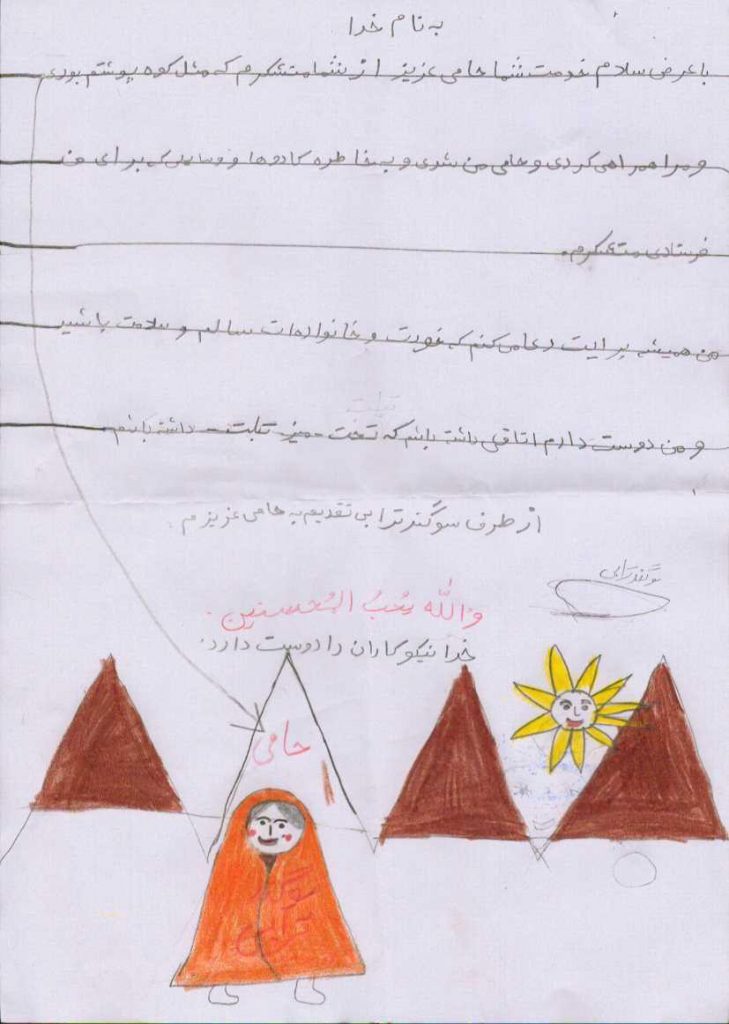 به نام خدا
با عرض سلام خدمت شما حامی عزیز از شما متشکرم که مثل کوه پوشتم بودی
و مرا همراهی کردی و حامی من شدی و به خاطره کادوها و وسایل که برای من
فرستادی متشکرم.
من همیشه برایت دعا می کنم که خودت و خانواده ات سالم و سلامت باشید
و من دوست دارم اتاقی داشته باشم که تخت - میز - تبلت - داشته باشم
از طرف سوگند ترابی تقدیم به حامی عزیزم.
سوگند ترابی
والله یحب المحسنین.
خدا نیکوکاران را دوست دارد.
حامی
سوگند
ترابی